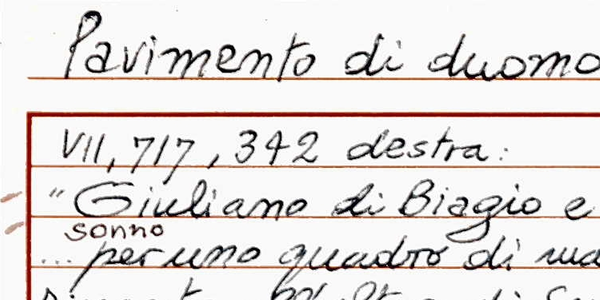 Pavimento di duomo
VII, 717, 342 destra:
"Giuliano di Biagio e
sonno
... per uno quadro di